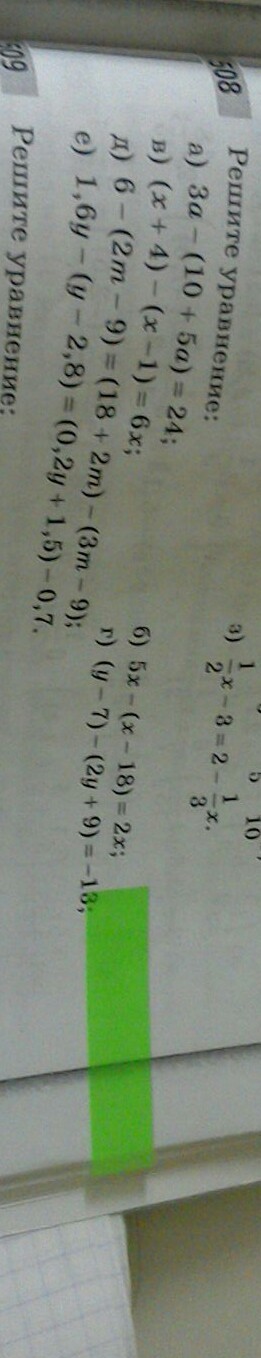 5 10,
з) 1/2 x − 3 = 2 − 1/3 x.
508 Решите уравнение:
а) 3a − (10 + 5a) = 24;
б) 5x − (x − 18) = 2x;
в) (x + 4) − (x − 1) = 6x;
г) (y − 7) − (2y + 9) = −13;
д) 6 − (2m − 9) = (18 + 2m) − (3m − 9);
е) 1,6y − (y − 2,8) = (0,2y + 1,5) − 0,7.
509 Решите уравнение: